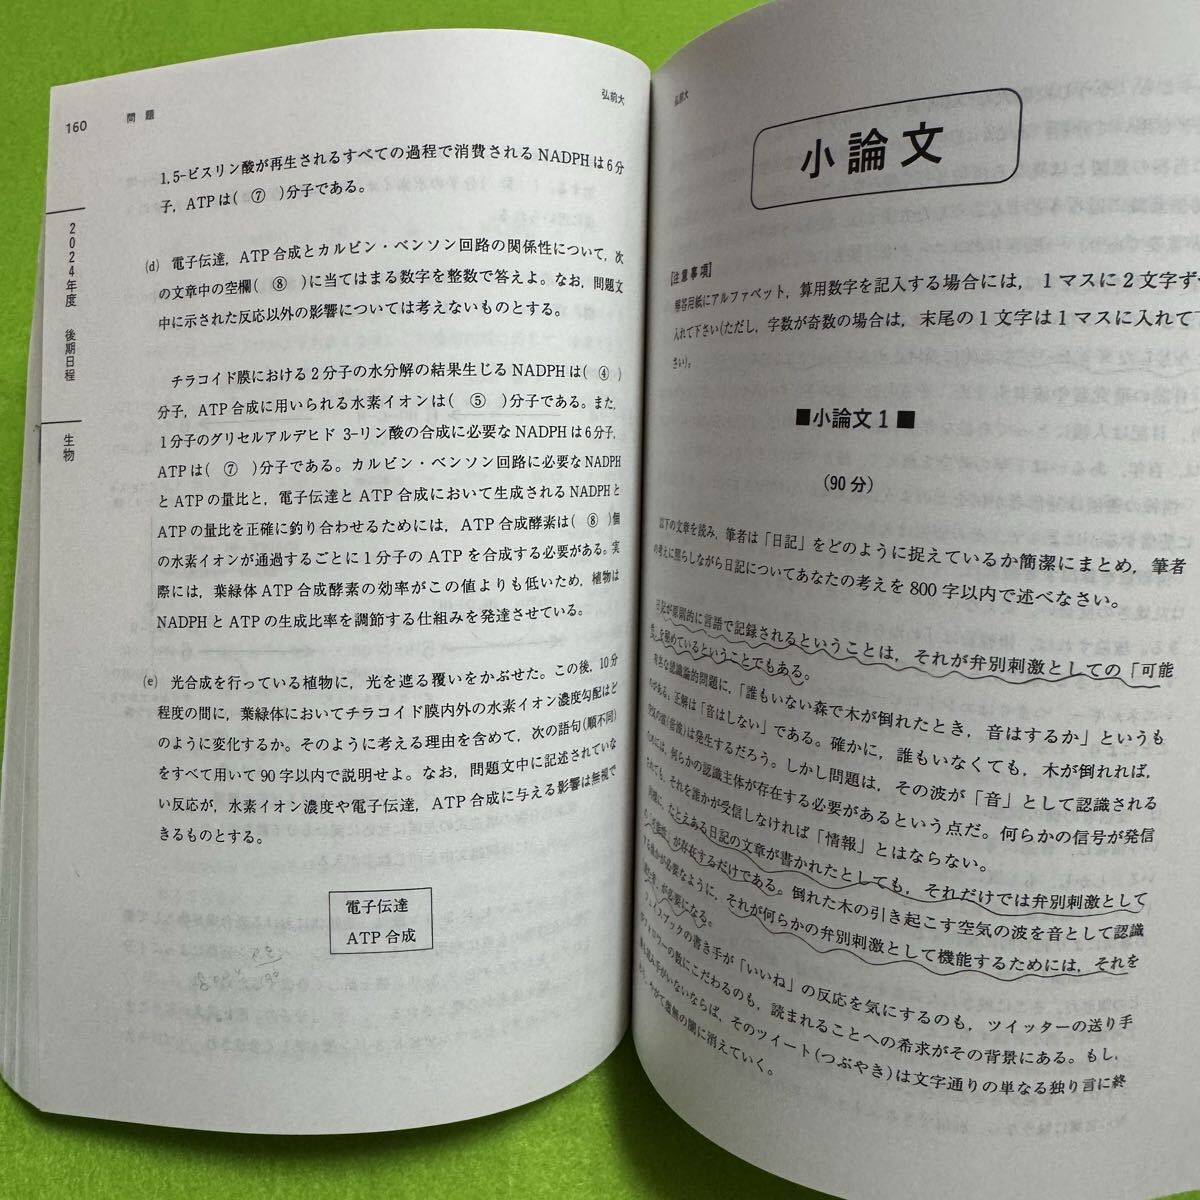 160
問題
弘前大
2024年度 後期日程
生物
1,5-ビスリン酸が再生されるすべての過程で消費される NADPH は 6 分
子, ATP は( ⑦ )分子である。
(d) 電子伝達, ATP 合成とカルビン・ベンソン回路の関係性について, 次
の文章中の空欄( ⑧ )に当てはまる数字を整数で答えよ。なお, 問題文
中に示された反応以外の影響については考えないものとする。
チラコイド膜における 2 分子の水分解の結果生じる NADPH は( ④ )
分子, ATP 合成に用いられる水素イオンは( ⑤ )分子である。また,
1 分子のグリセルアルデヒド 3-リン酸の合成に必要な NADPH は 6 分子,
ATP は( ⑦ )分子である。カルビン・ベンソン回路に必要な NADPH
と ATP の量比と, 電子伝達と ATP 合成において生成される NADPH と
ATP の量比を正確に釣り合わせるためには, ATP 合成酵素は( ⑧ )個
の水素イオンが通過するごとに 1 分子の ATP を合成する必要がある。実
際には, 葉緑体 ATP 合成酵素の効率がこの値よりも低いため, 植物は
NADPH と ATP の生成比率を調節する仕組みを発達させている。
(e) 光合成を行っている植物に, 光を遮る覆いをかぶせた。この後, 10 分
程度の間に, 葉緑体においてチラコイド膜内外の水素イオン濃度勾配はど
のように変化するか。そのように考える理由を含めて, 次の語句(順不同)
をすべて用いて 90 字以内で説明せよ。なお, 問題文中に記述されていな
い反応が, 水素イオン濃度や電子伝達, ATP 合成に与える影響は無視で
きるものとする。
電子伝達
ATP 合成
弘前大
小論文
[注意事項]
解答用紙にアルファベット, 算用数字を記入する場合には, 1 マスに 2 文字ずつ
入れて下さい(ただし, 字数が奇数の場合は, 末尾の 1 文字は 1 マスに入れて下
さい)。
■小論文 1■
(90 分)
以下の文章を読み, 筆者は「日記」をどのように捉えているか簡潔にまとめ, 筆者
の考えに照らしながら日記についてあなたの考えを 800 字以内で述べなさい。
日記が原則的に言語で記録されるということは, それが弁別刺激としての「可能
性」を秘めているということでもある。
有名な認識論的問題に,「誰もいない森で木が倒れたとき, 音はするか」というも
のがある。正解は「音はしない」である。確かに, 誰もいなくても, 木が倒れれば,
空気の波(音波)は発生するだろう。しかし問題は, その波が「音」として認識される
ためには, 何らかの認識主体が存在する必要があるという点だ。何らかの信号が発信
されても, それを誰かが受信しなければ「情報」とはならない。
同様に, たとえある日記の文章が書かれたとしても, それだけでは弁別刺激として
の「可能性」が存在するだけである。倒れた木の引き起こす空気の波を音として認識
する誰かが必要なように, それが何らかの弁別刺激として機能するためには, それを
「読む者」が必要になる。
フェイスブックの書き手が「いいね」の反応を気にするのも, ツイッターの送り手
がフォロワーの数にこだわるのも, 読まれることへの希求がその背景にある。もし,
読み手がいないならば, そのツイート(つぶやき)は文字通りの単なる独り言に終
やがて虚無の闇に消えていく。